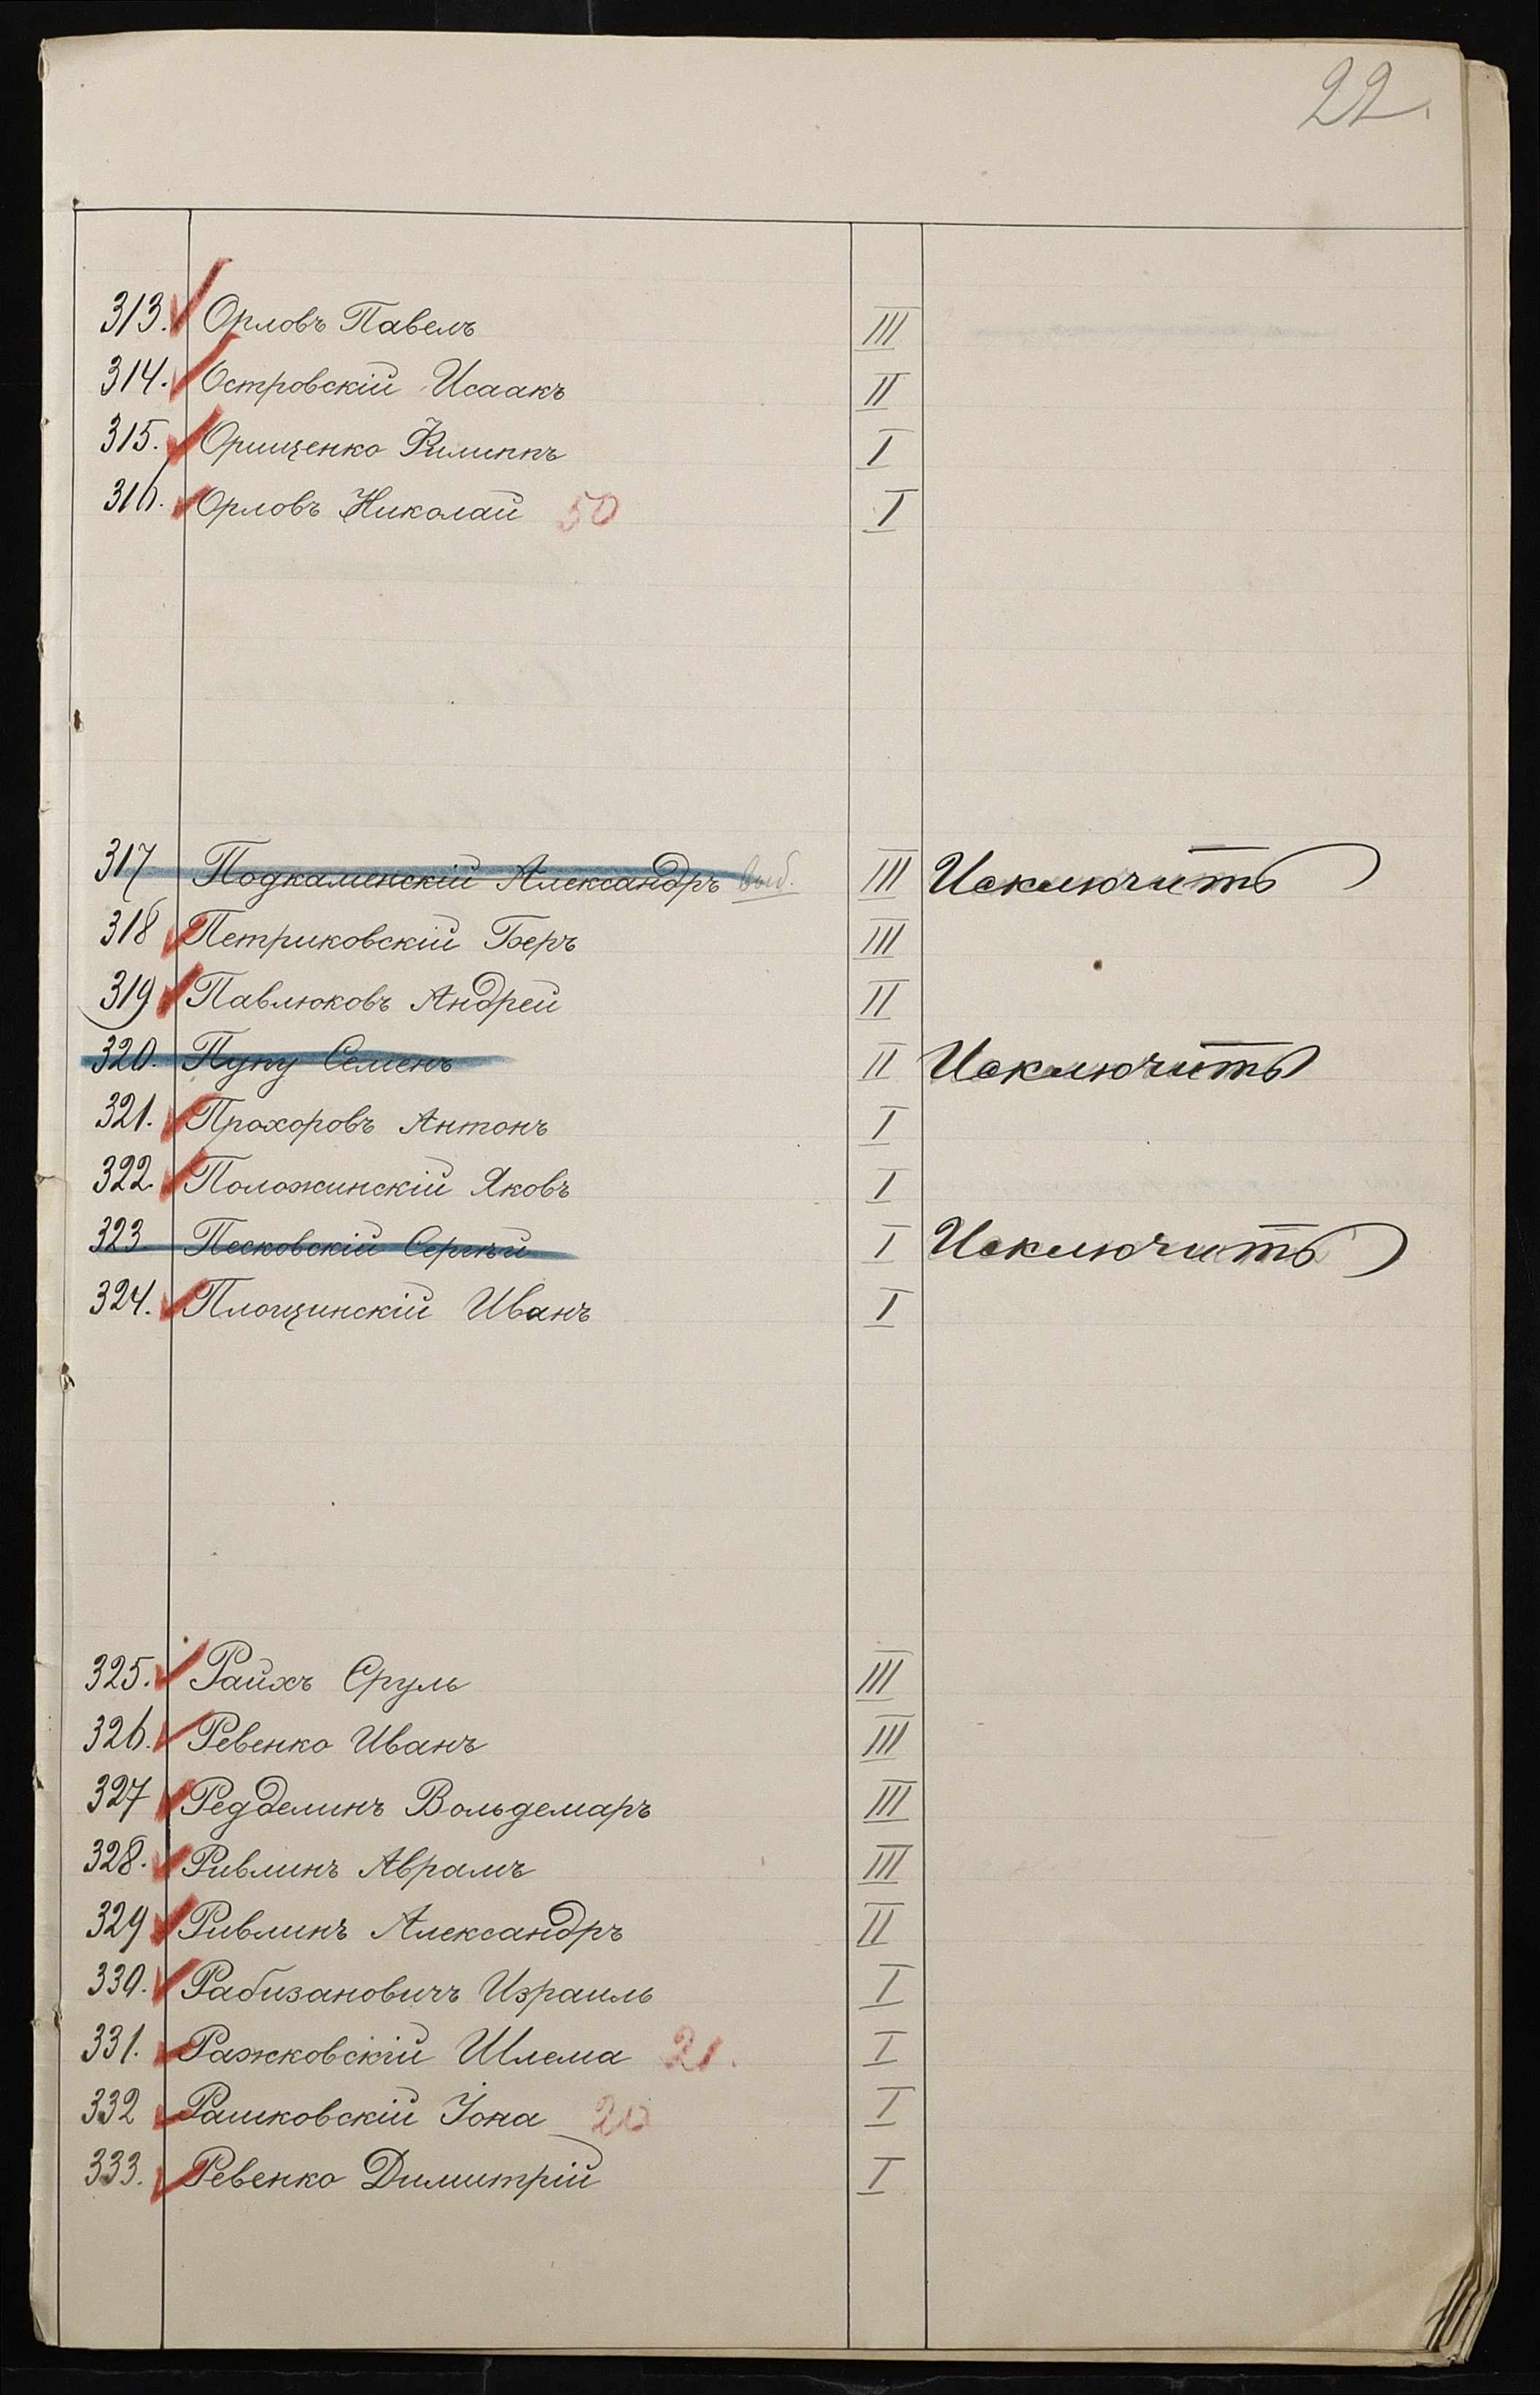 22.
313. Орловъ Павелъ III
314. Островскій Исаакъ II
315. Орищенко Филиппъ I
316. Орловъ Николай 50 I
317 Подкаменскій Александръ выб. III Исключить
318 Петриковскій Беръ III
319 Павлюковъ Андрей II
320. Пупу Семенъ II Исключить
321. Прохоровъ Антонъ I
322. Положинскій Яковъ I
323 Песковскій Сергѣй I Исключить
324. Площинскій Иванъ I
325. Райхъ Сруль III
326. Ревенко Иванъ III
327 Редделинъ Вольдемаръ III
328. Ривлинъ Аврамъ III
329 Ривлинъ Александръ II
330. Рабизановичъ Израиль I
331. Ражковскій Шлема 21. I
332 Рашковскій Іона 20 I
333. Ревенко Димитрій I